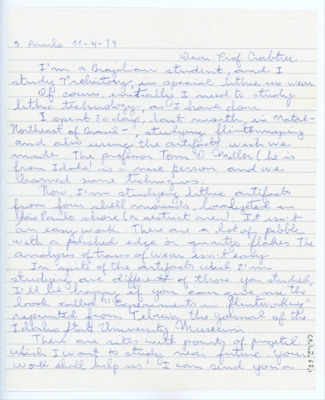 S. Paulo 11-4-79
Dear Prof Crabtree
I'm a Brazilian student, and I
study Prehistory, in special lithic use wear.
Of course, initially I need to study
lithic technology, as I have done.
I spent 20 days, last month, in Natal-
Northeast of Brazil-, studying flintknapping
and also using the artifacts wich we
made. The professor Tom O. Miller (he is
from Idaho) is a nice person and we
learned some techniques.
Now, I'm studying lithic artifacts
from four shell mounds, localizated in
São Paulo shore (a restrict area). It isn't
an easy work. There are a lot of pebble
with a polished edge or quartz flakes. The
analysis of traces of wear isn't easy.
In spite of the artifacts which I'm
studying are different of those you studied,
I'll be happy if you can give me the
book called "Experiments in flintworking"
reprinted from Tebiwa, the Journal of the
Idaho State University Museum
There are sites with points of projetil
which I want to study near future. Your
work shall help us! I can send you a